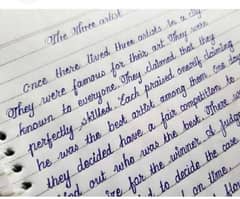 The three artist
Once there lived three artists in a city
They were famous for their art. They were
known to everyone. They claimed that they
perfectly skilled. Each praised openly claiming
he was the best artist among them. One day
they decided have a fair competition to
find out who was the best. There was
for the winner. A judge
to decide the case
on time